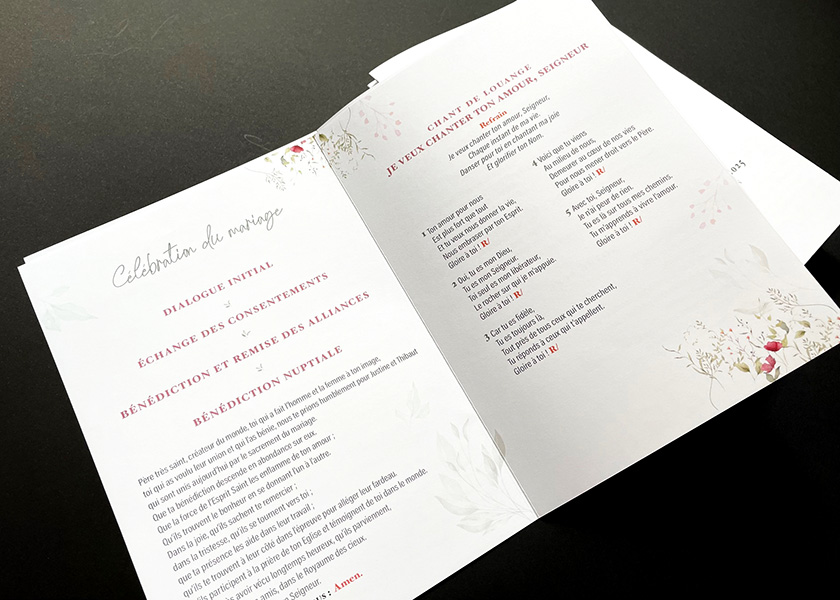 Célébration du mariage
DIALOGUE INITIAL
ÉCHANGE DES CONSENTEMENTS
BÉNÉDICTION ET REMISE DES ALLIANCES
BÉNÉDICTION NUPTIALE
Père très saint, créateur du monde, toi qui a fait l'homme et la femme à ton image,
toi qui as voulu leur union et qui l'as bénie, nous te prions humblement pour Justine et Thibaut
qui sont unis aujourd'hui par le sacrement du mariage.
Que ta bénédiction descende en abondance sur eux.
Que la force de l'Esprit Saint les enflamme de ton amour ;
Qu'ils trouvent le bonheur en se donnant l'un à l'autre.
Dans la joie, qu'ils sachent te remercier ;
dans la tristesse, qu'ils se tournent vers toi ;
que ta présence les aide dans leur travail ;
qu'ils te trouvent à leur côté dans l'épreuve pour alléger leur fardeau.
qu'ils participent à la prière de ton Eglise et témoignent de toi dans le monde.
après avoir vécu longtemps heureux, qu'ils parviennent,
amis, dans le Royaume des cieux.
Seigneur.
: Amen.
CHANT DE LOUANGE
JE VEUX CHANTER TON AMOUR, SEIGNEUR
Refrain
Je veux chanter ton amour, Seigneur,
Chaque instant de ma vie.
Danser pour toi en chantant ma joie
Et glorifier ton Nom.
1 Ton amour pour nous
Est plus fort que tout
Et tu veux nous donner la vie,
Nous embraser par ton Esprit.
Gloire à toi ! R/
2 Oui, tu es mon Dieu,
Tu es mon Seigneur.
Toi seul es mon libérateur,
Le rocher sur qui je m'appuie.
Gloire à toi ! R/
3 Car tu es fidèle,
Tu es toujours là,
Tout près de tous ceux qui te cherchent,
Tu réponds à ceux qui t'appellent.
Gloire à toi ! R/
4 Voici que tu viens
Au milieu de nous,
Demeurer au cœur de nos vies
Pour nous mener droit vers le Père.
Gloire à toi ! R/
5 Avec toi, Seigneur,
Je n'ai peur de rien.
Tu es là sur tous mes chemins.
Tu m'apprends à vivre l'amour.
Gloire à toi ! R/